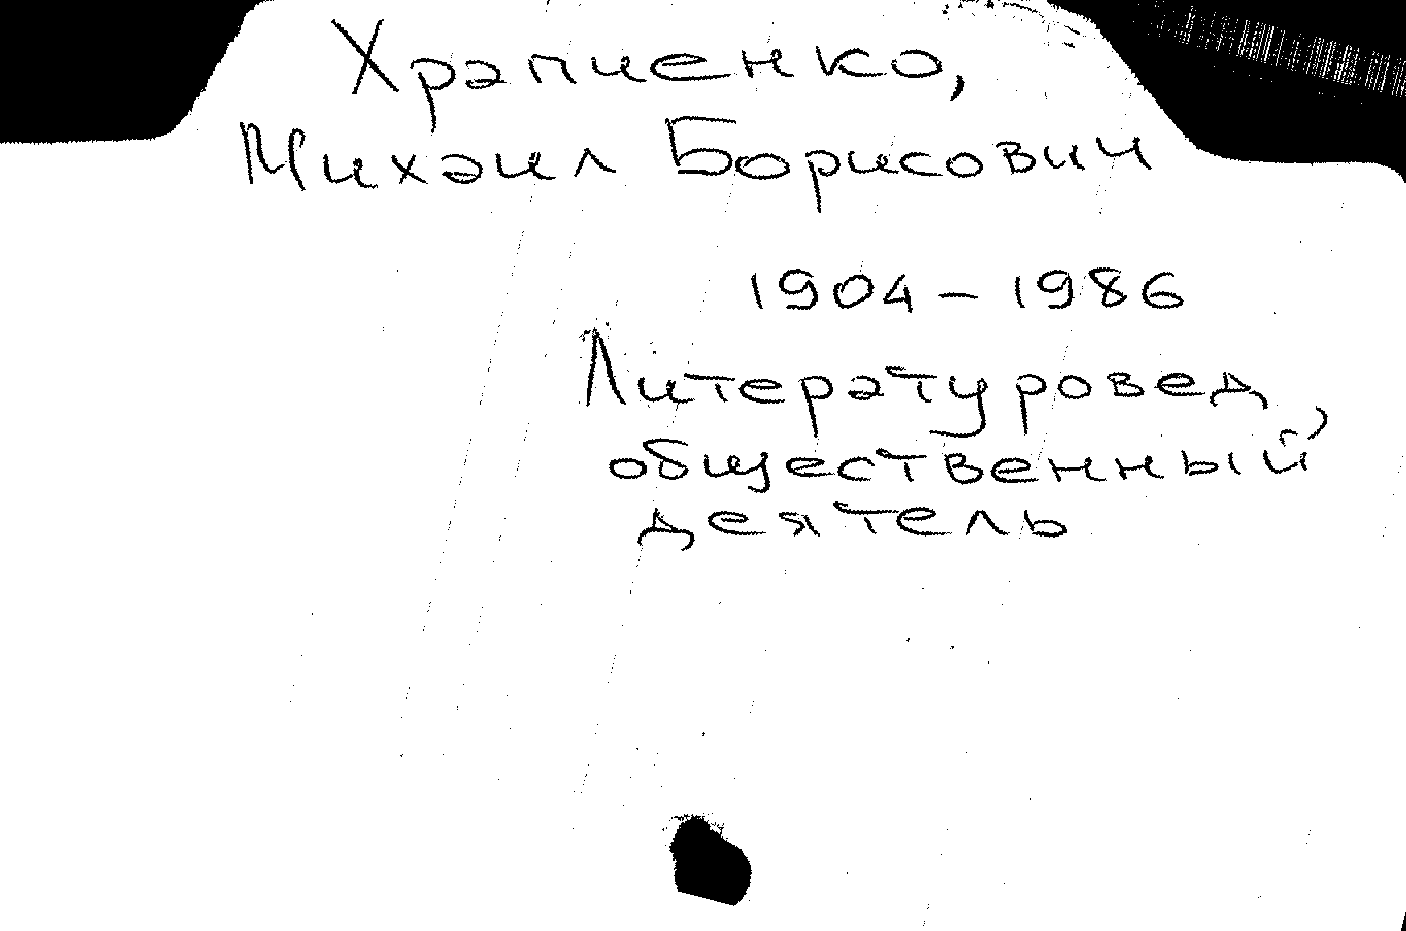 Храпченко,
Михаил Борисович
1904 - 1986
Литературовед,
общественный
деятель